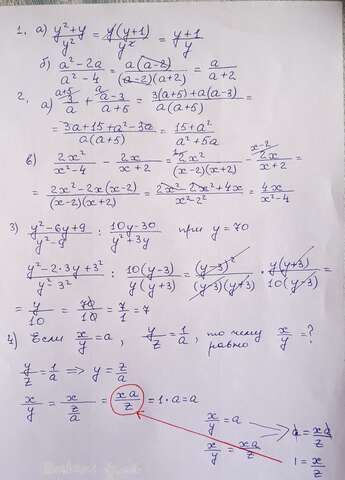 1. а) y²+y / y² = y(y+1) / y² = y+1 / y
б) a²-2a / a²-4 = a(a-2) / (a-2)(a+2) = a / a+2
2. а) a+5 3 / a + a a-3 / a+5 = 3(a+5)+a(a-3) / a(a+5) =
= 3a+15+a²-3a / a(a+5) = 15+a² / a²+5a
в) 2x² / x²-4 - 2x / x+2 = 2x² / (x-2)(x+2) - x-2 2x / x+2 =
= 2x²-2x(x-2) / (x-2)(x+2) = 2x²-2x²+4x / x²-2² = 4x / x²-4
3) y²-6y+9 / y²-9 : 10y-30 / y²+3y при y=70
y²-2·3y+3² / y²-3² : 10(y-3) / y(y+3) = (y-3)² / (y-3)(y+3) · y(y+3) / 10(y-3) =
= y / 10 = 70 / 10 = 7 / 1 = 7
4) Если x/y = a, y/z = 1/a, то чему равно x/y = ?
y/z = 1/a => y = z/a
x/y = x / z/a = xa / z = 1·a = a
x/y = a
a = xa / z
x/y = xa / z
1 = x / z